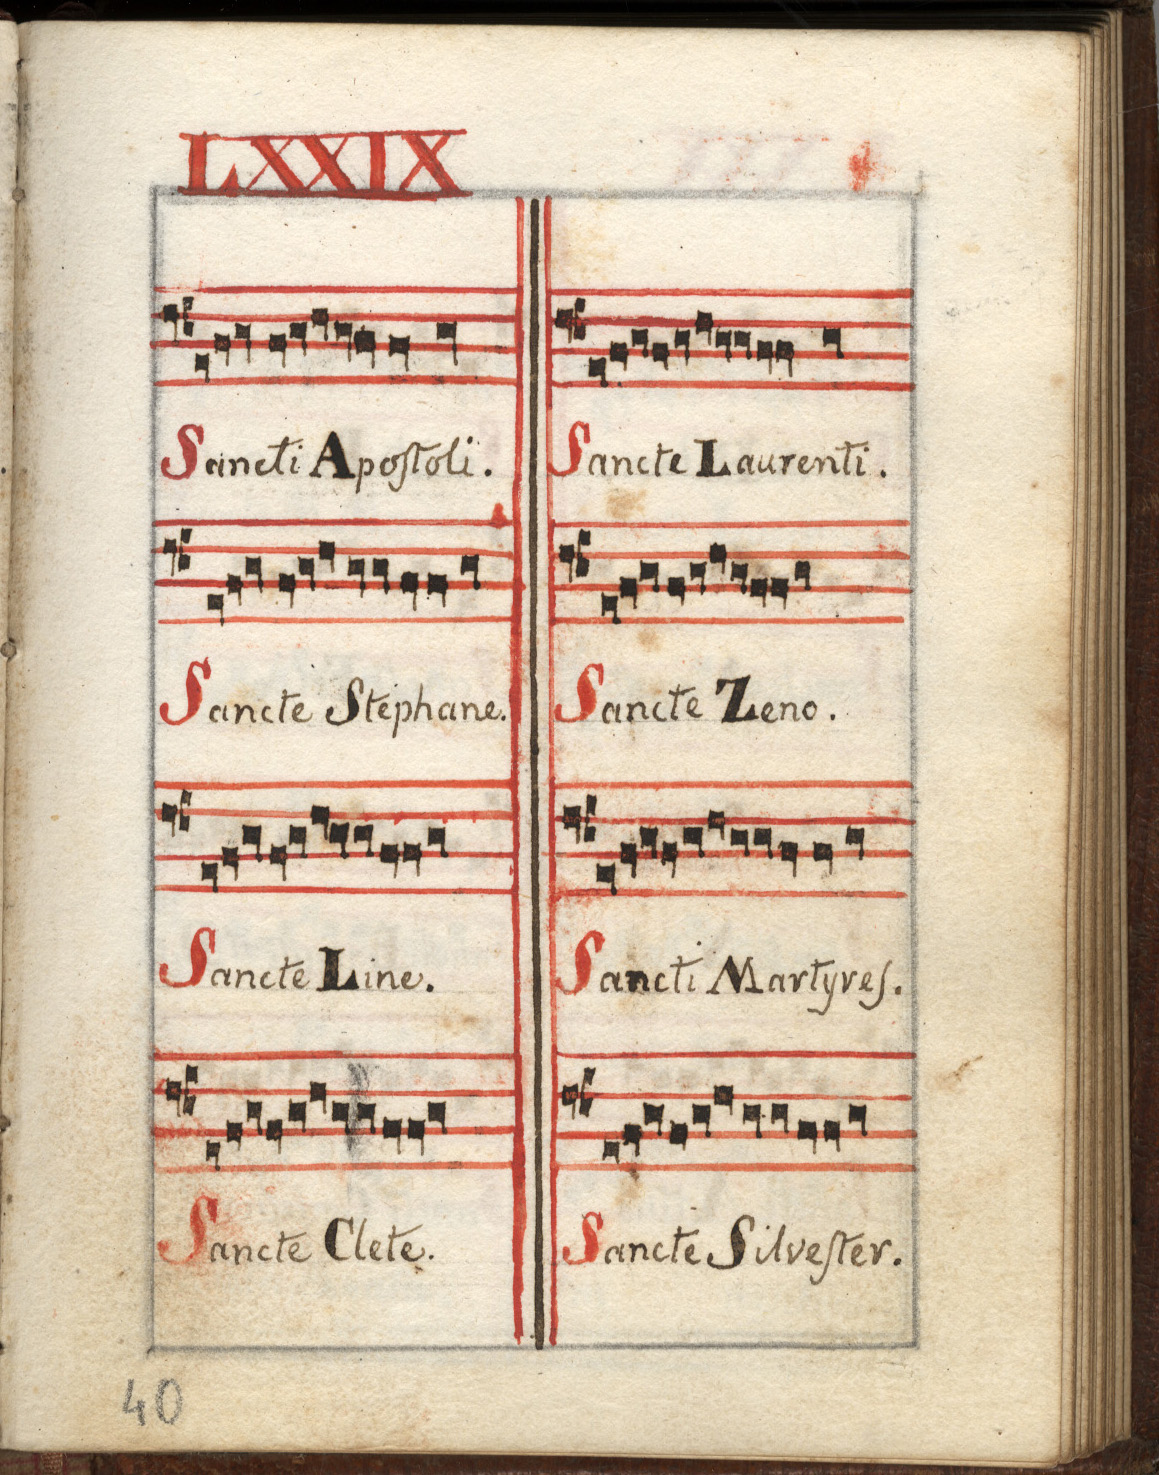 LXXIX
Sancti Apostoli.
Sancte Stephane.
Sancte Line.
Sancte Clete.
Sancte Laurenti.
Sancte Zeno.
Sancti Martyres.
Sancte Silvester.
40